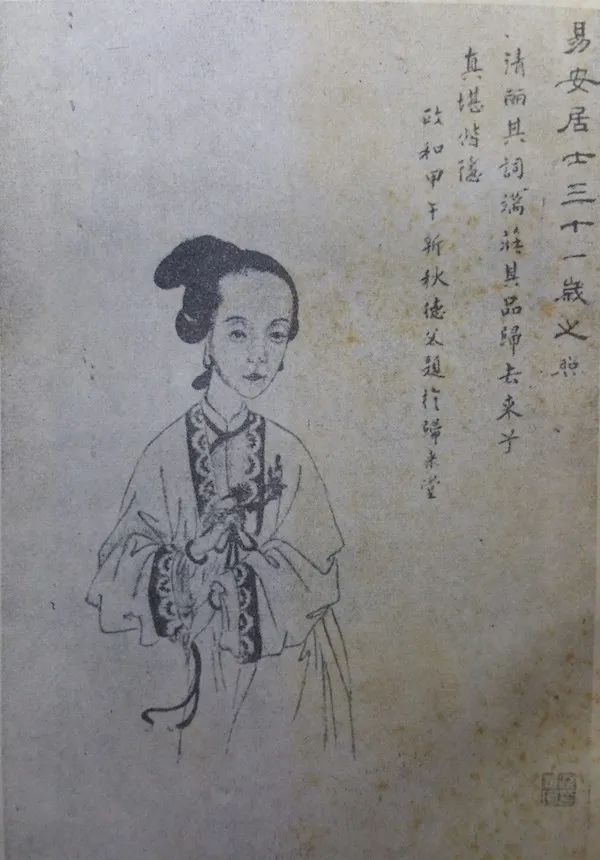 易安居士三十一歲之照
清丽其詞端莊其品歸去來兮
真堪偕隱
政和甲午新秋德父題於歸来堂